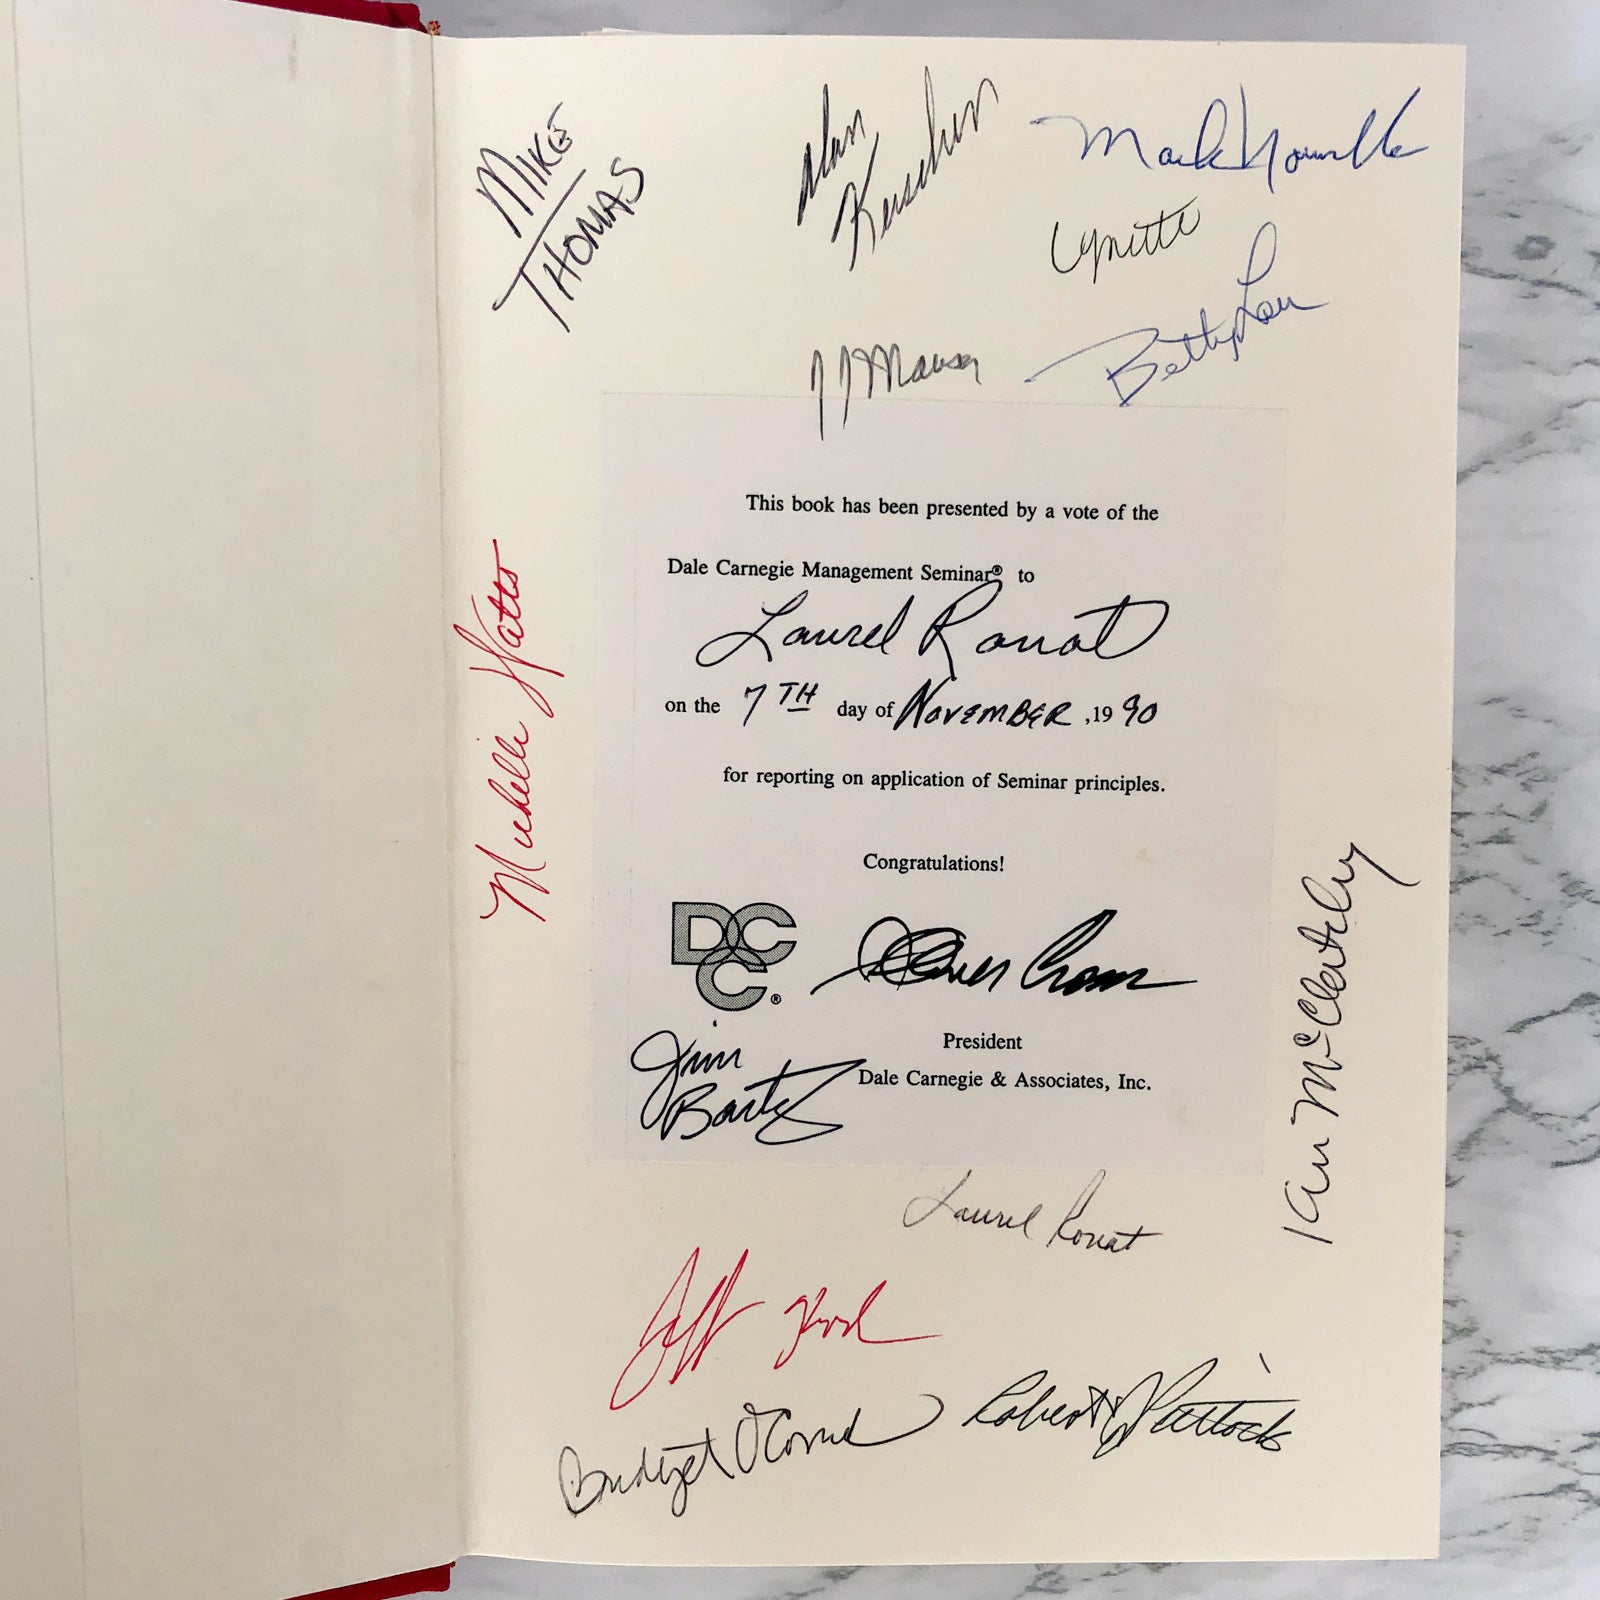 MIKE
THOMAS
Alan
Mark
Lynette
Betty Lou
JJ
This book has been presented by a vote of the
Dale Carnegie Management Seminar® to
Laurel Ronat
on the 7TH day of NOVEMBER ,19 90
for reporting on application of Seminar principles.
Congratulations!
DCC
C®
Jim
Bartz
President
Dale Carnegie & Associates, Inc.
Michelle
Ian McCleachy
Laurel Ronat
Jeff
Bridget O'Connell
Robert J